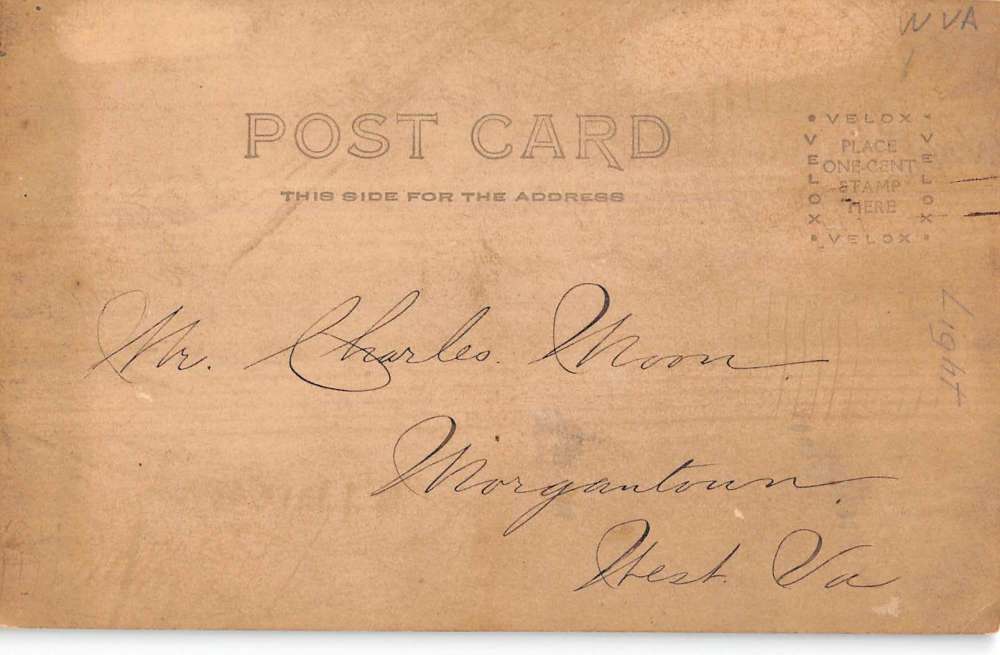 W VA
POST CARD
THIS SIDE FOR THE ADDRESS
VELOX
VELOX
PLACE
ONE CENT
STAMP
HERE
VELOX
VELOX
Mr. Charles. Moon.
Morgantown.
West. Va